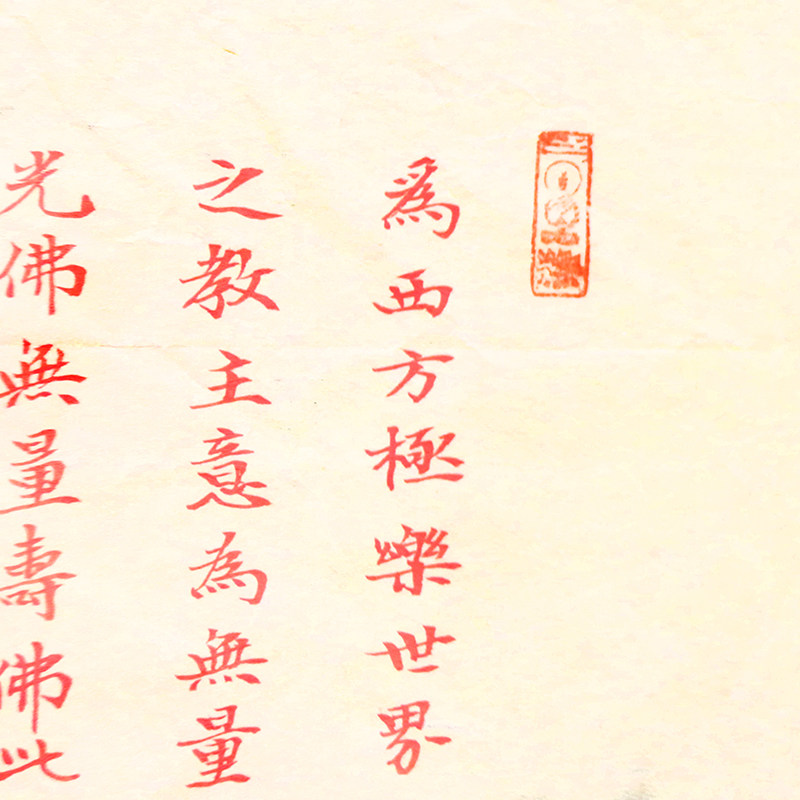 爲西方極樂世界
之教主意為無量
光佛無量壽佛此